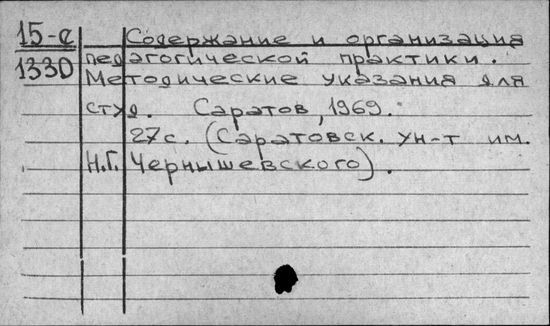 15-с Содержание и организация
1330 педагогической практики.
Методические указания для
студ. Саратов, 1969.
27с. (Саратовск. ун-т им.
Н.Г. Чернышевского).